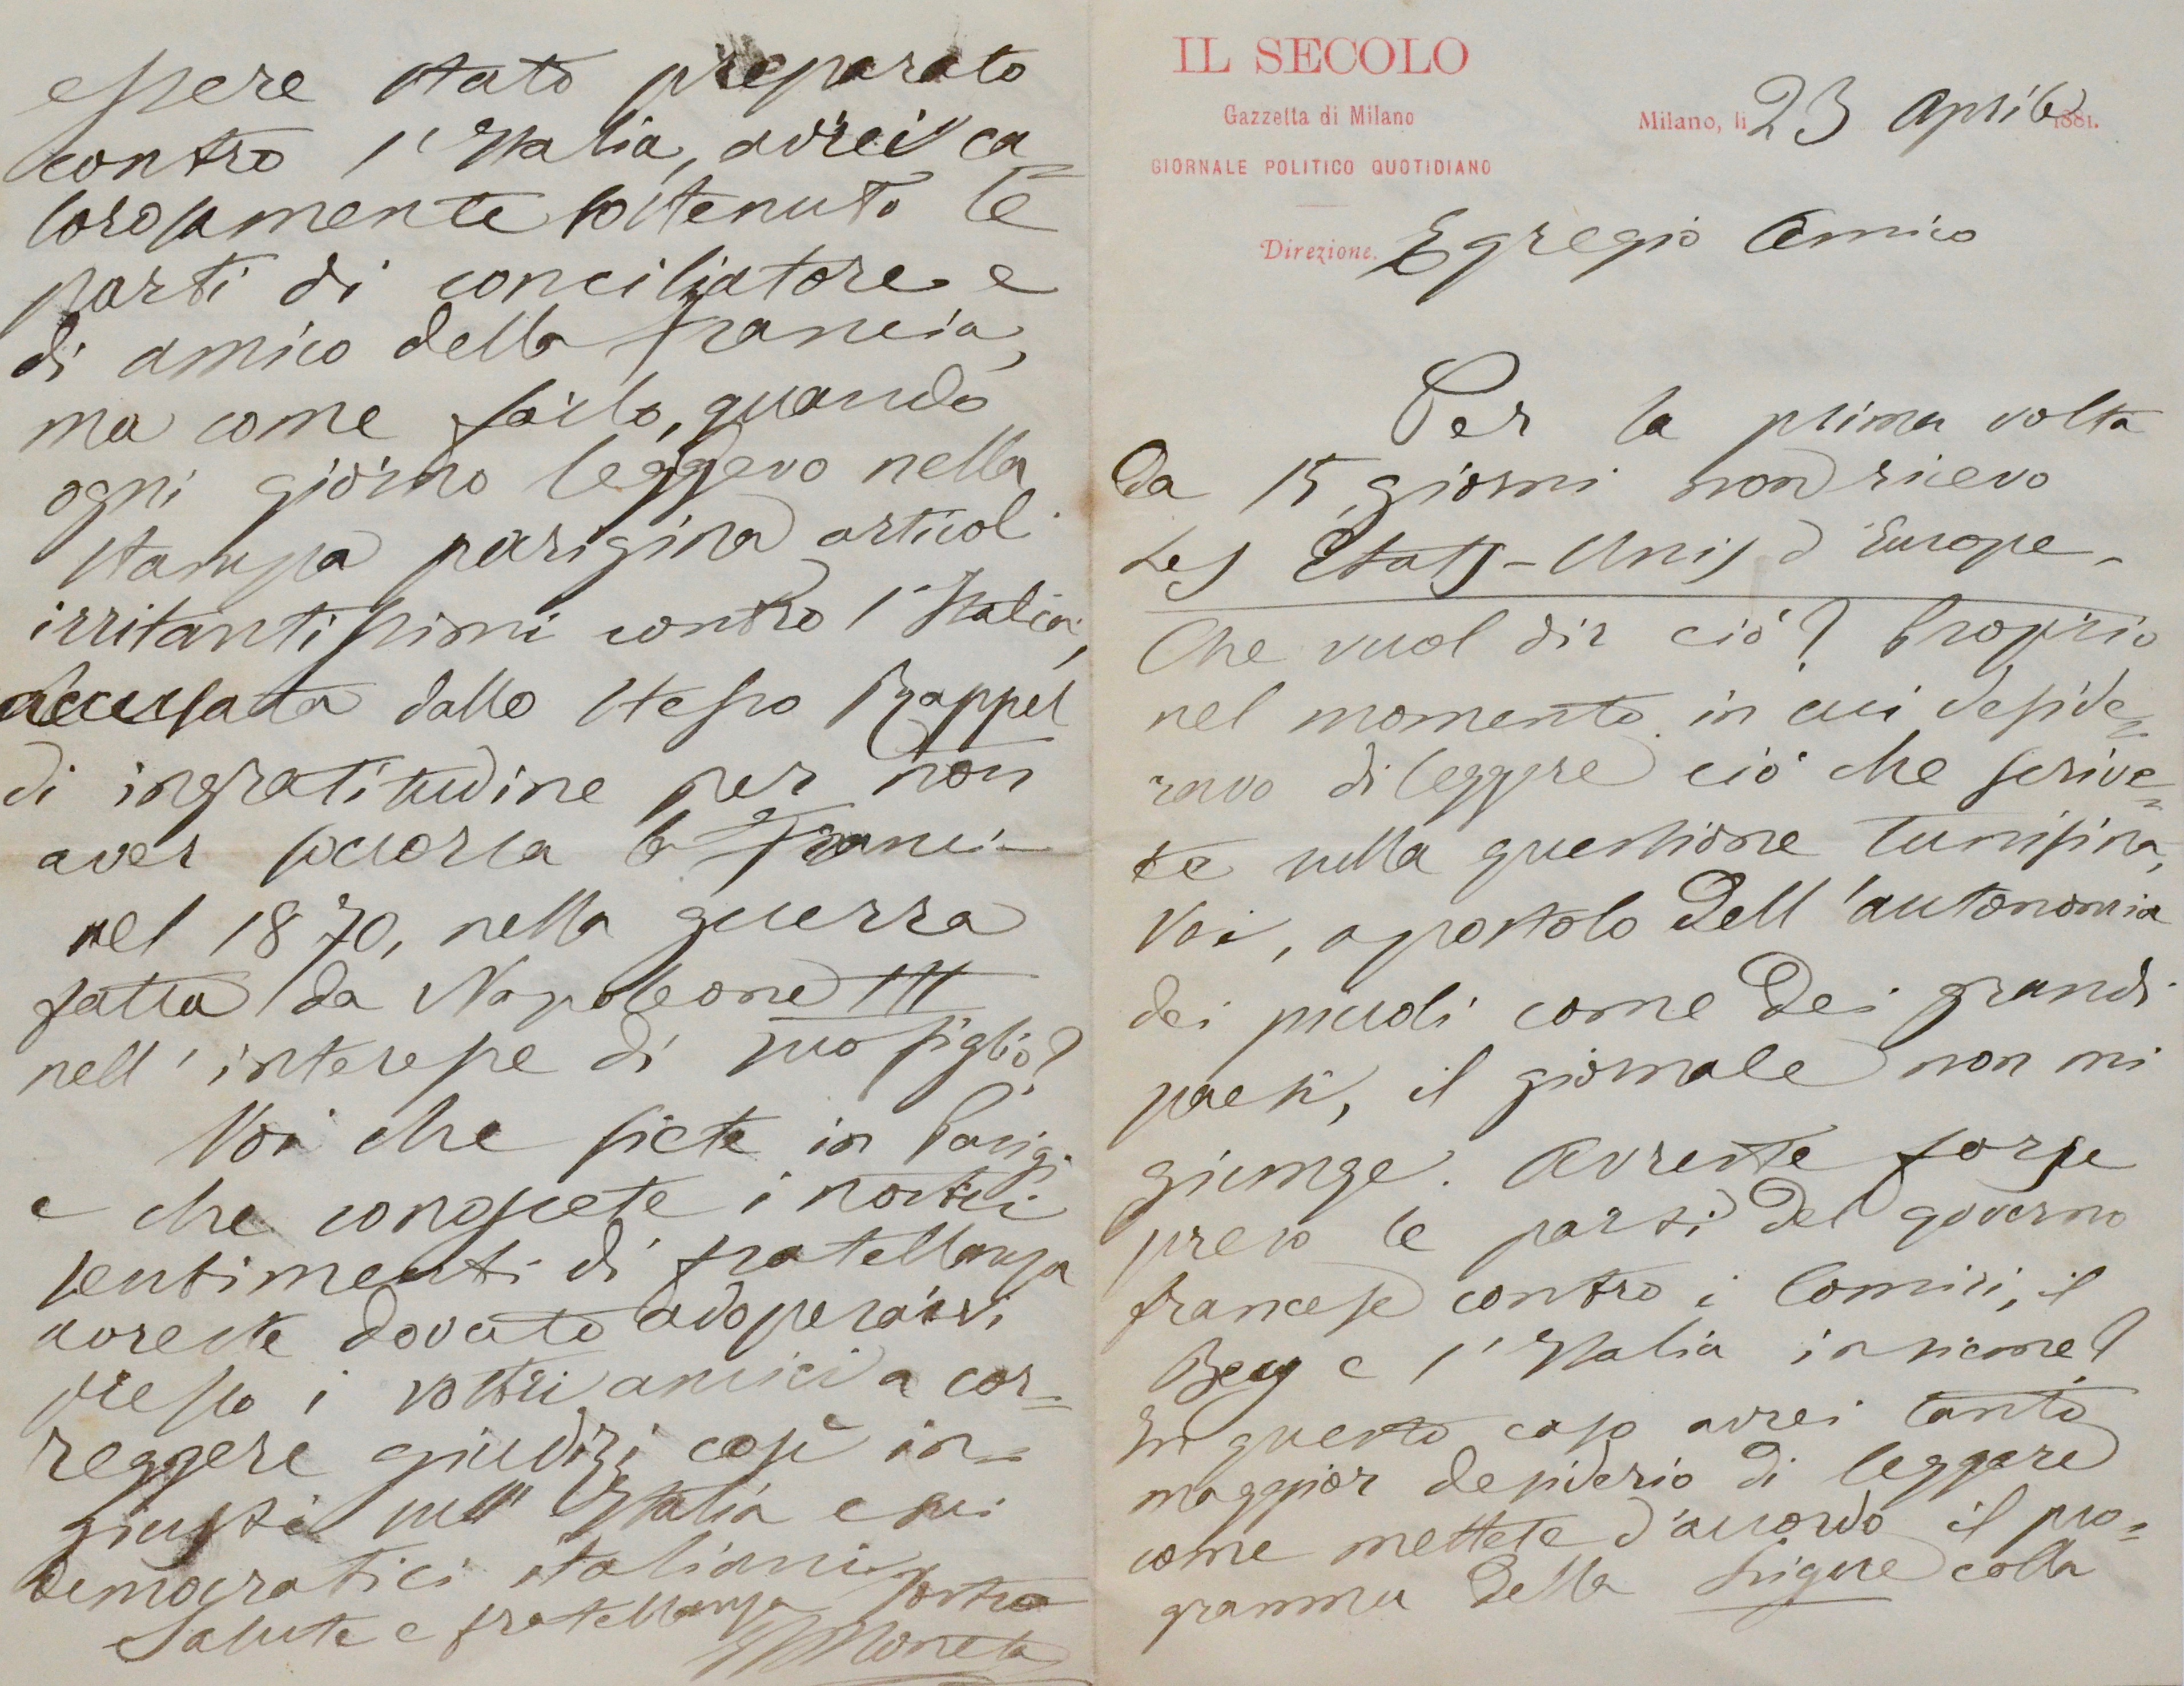 IL SECOLO
Gazzetta di Milano
GIORNALE POLITICO QUOTIDIANO
Direzione.
Milano, li 23 Aprile 1881.
Egregio Amico
Per la prima volta
da 15 giorni non ricevo
Les Etats-Unis d'Europe.
Che vuol dir ciò? Proprio
nel momento in cui deside=
ravo di leggere ciò che scrive=
te sulla questione tunisina,
Voi, apostolo dell'autonomia
dei piccoli come dei grandi
paesi, il giornale non mi
giunge. Avreste forse
preso le parti del governo
francese contro i Comiri, il
Bey e l'Italia insieme?
In questo caso avrei tanto
maggior desiderio di leggere
come mettete d'accordo il pro=
gramma della Ligue colla
essere stato preparato
contro l'Italia, avrei ca=
lorosamente sostenuto le
parti di conciliatore e
di amico della Francia,
ma come farlo, quando
ogni giorno leggevo nella
stampa parigina articoli
irritantissimi contro l'Italia,
accusata dallo stesso Rappel
di ingratitudine per non
aver soccorsa la Francia
nel 1870, nella guerra
fatta da Napoleone III
nell'interesse di suo figlio?
Voi che siete in Parigi
e che conoscete i nostri
sentimenti di fratellanza
avreste dovuto adoperarvi
presso i vostri amici a cor=
reggere giudizi così in=
giusti sull'Italia e sui
democratici italiani.
Salute e fratellanza Vostro
E T Moneta